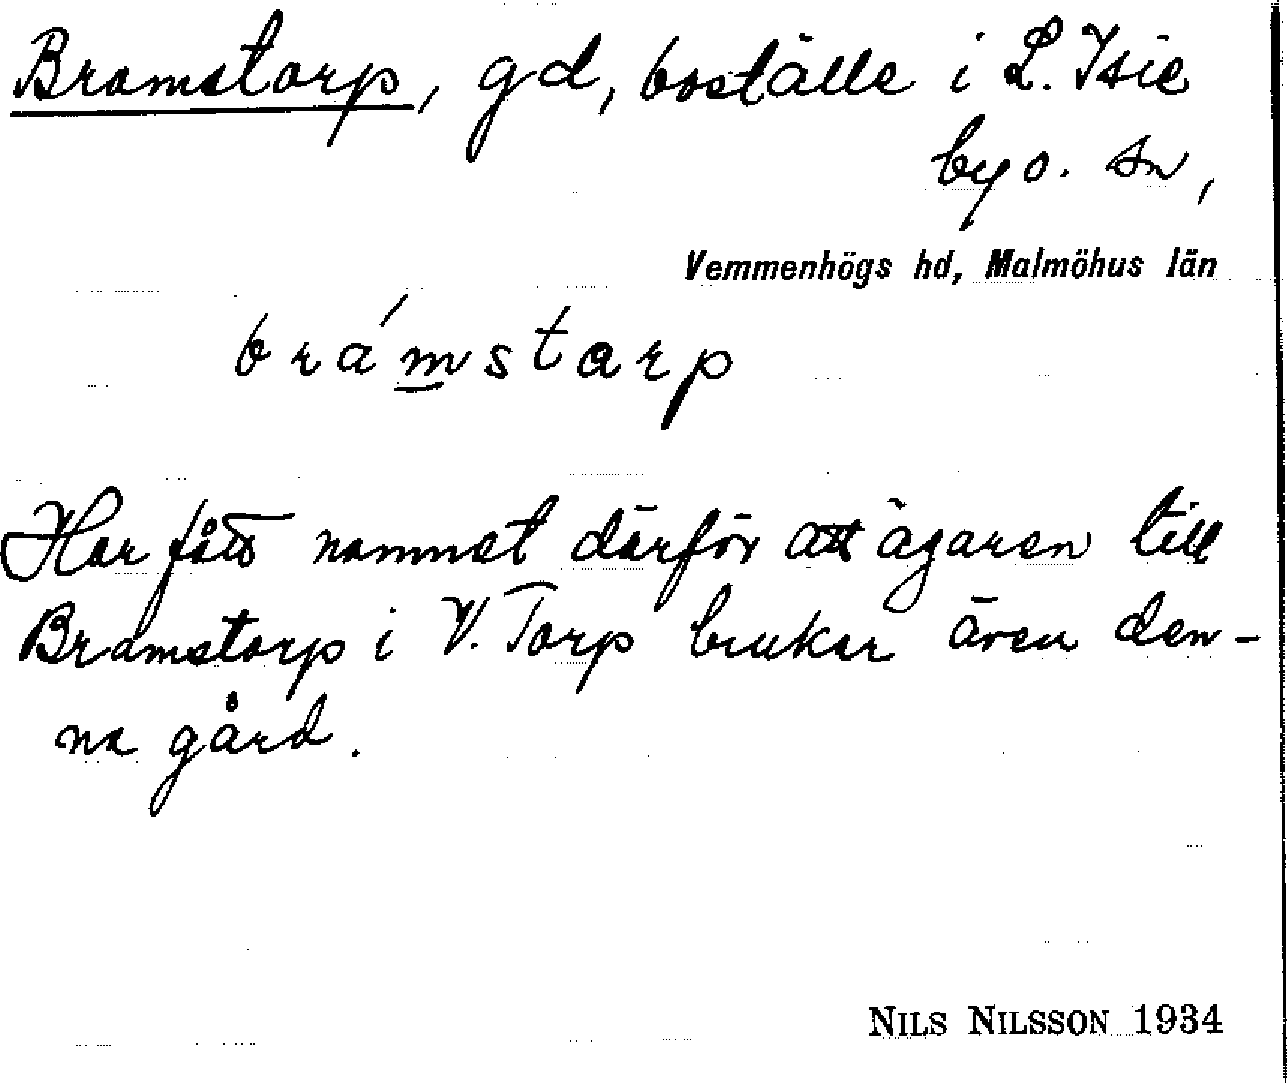 Bramstorp, gd, boställe i L. Isie
by o. sn,
Vemmenhögs hd, Malmöhus län
brámstarp
Har fått namnet därför att ägaren till
Bramstorp i V. Torp brukar även den-
na gård.
NILS NILSSON 1934